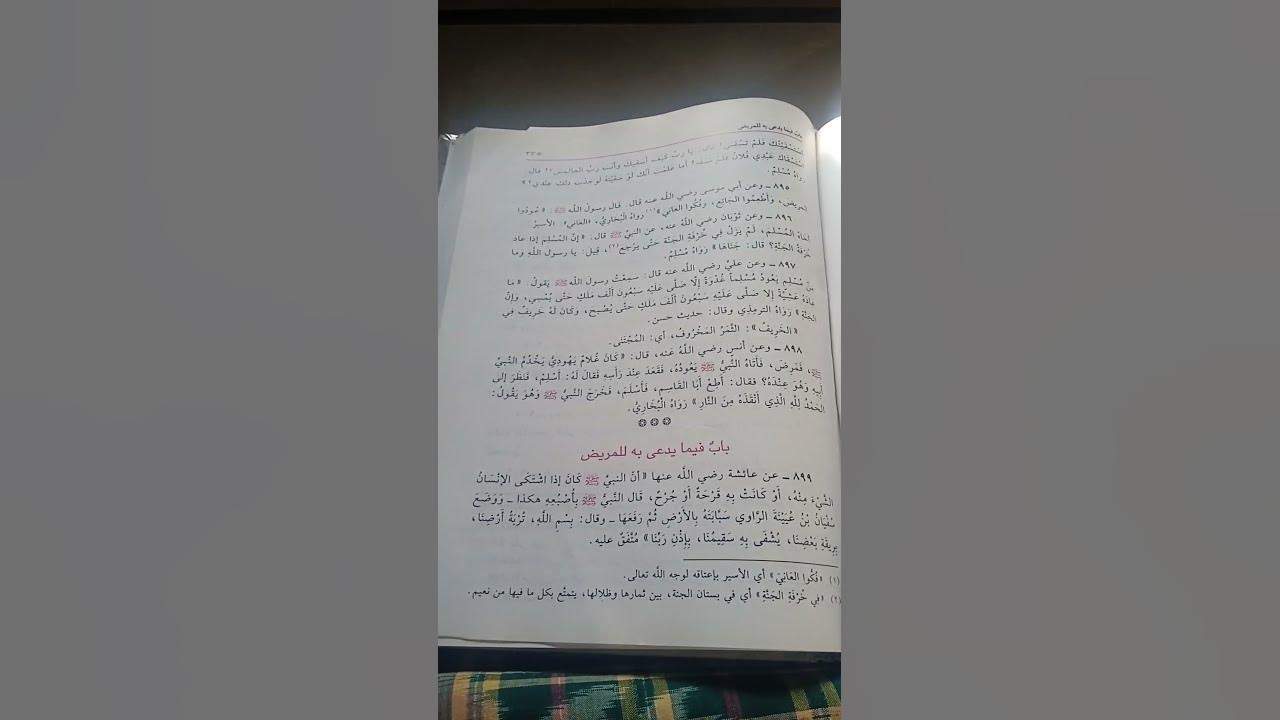 باب فيما يدعى به للمريض ٣٣٥
اسْتَسْقَيْتُكَ فَلَمْ تَسْقِنِي! قال: يا ربّ كَيْفَ أَسْقِيكَ وأنت ربُّ العالمين؟! قال
اسْتَسْقَاكَ عَبْدِي فُلانٌ فَلَمْ تَسْقِهِ! أما عَلِمْتَ أنَّكَ لَوْ سَقَيْتَهُ لَوَجَدْتَ ذلك عِنْدِي؟»
رَوَاهُ مُسْلِمٌ.
٨٩٥ ـ وعن أبي موسى رضي اللَّه عنه قال: قال رسولُ اللَّه ﷺ: «عُودُوا
المَرِيضَ، وَأَطْعِمُوا الجَائِعَ، وَفُكُّوا العَانِي»(١) رَوَاهُ الْبُخَارِيُّ، «العَانِي»: الأسيرُ.
٨٩٦ ـ وعن ثَوْبَان رضي اللَّهُ عنه، عن النبيِّ ﷺ قال: «إنَّ المُسْلِمَ إذا عَادَ
أَخَاهُ المُسْلِمَ، لَمْ يَزَلْ فِي خُرْفَةِ الجَنَّة حتَّى يَرْجِعَ(٢)، قِيلَ: يا رسولَ اللَّهِ وما
خُرْفَةُ الجَنَّةِ؟ قال: جَنَاهَا» رَوَاهُ مُسْلِمٌ.
٨٩٧ ـ وعن عليٍّ رضي اللَّه عنه قال: سمِعْتُ رسولَ اللَّه ﷺ يَقولُ: «ما
مِنْ مُسْلِمٍ يَعُودُ مُسْلِماً غُدْوَةً إلَّا صَلَّى عَلَيْهِ سَبْعُونَ أَلْف مَلَكٍ حَتَّى يُمْسي، وَإِنْ
عَادَهُ عَشِيَّةً إلا صَلَّى عَلَيْهِ سَبْعُونَ أَلْف مَلَكٍ حَتَّى يُصْبحَ، وَكَانَ لَهُ خَرِيفٌ فِي
الجنَّةِ» رَوَاهُ الترمِذِي وقال: حديث حسن.
«الخَرِيفُ»: الثَّمَرُ المَخْرُوفُ، أي: المُجْتَنَى.
٨٩٨ ـ وعن أنسٍ رضي اللَّهُ عَنه، قال: «كَانَ غُلَامٌ يَهُودِيٌّ يَخْدُمُ النَّبيَّ
ﷺ، فَمَرِضَ، فَأَتَاهُ النَّبيُّ ﷺ يَعُودُهُ، فَقَعَدَ عِنْدَ رَأْسِهِ فَقَالَ لَهُ: أَسْلِمْ، فَنَظَرَ إلى
أبِيهِ وَهُوَ عِنْدَهُ؟ فقال: أَطِعْ أَبَا القَاسِم، فَأَسْلَمَ، فَخَرَجَ النَّبيُّ ﷺ وَهُوَ يَقُولُ:
الحَمْدُ لِلَّهِ الَّذِي أَنْقَذَهُ مِنَ النَّارِ» رَوَاهُ الْبُخَارِيُّ.
بابُ فيما يدعى به للمريض
٨٩٩ ـ عن عائشة رضي اللَّه عنها «أنّ النبيَّ ﷺ كَانَ إذَا اشْتَكَى الإنْسَانُ
الشَّيْءَ مِنْهُ، أَوْ كَانَتْ بِهِ قَرْحَةٌ أَوْ جُرْحٌ، قال النَّبيُّ ﷺ بِأُصْبُعِهِ هكذا ـ وَوَضَعَ
سُفْيَانُ بْنُ عُيَيْنَةَ الرَّاوي سَبَّابَتَهُ بِالأَرْضِ ثُمَّ رَفَعَهَا ـ وقال: بِسْمِ اللَّهِ، تُرْبَةُ أَرْضِنَا،
بِرِيقَةِ بَعْضِنَا، يُشْفَى بِهِ سَقِيمُنَا، بِإِذْنِ رَبِّنَا» مُتَّفَقٌ عليه.
(١) «فُكُّوا العَانِيَ» أي الأسير بإعتاقه لوجه اللَّه تعالى.
(٢) «في خُرْفَةِ الجَنَّةِ» أي في بستان الجنة، بين ثمارها وظلالها، يتمتَّع بكل ما فيها من نعيم.